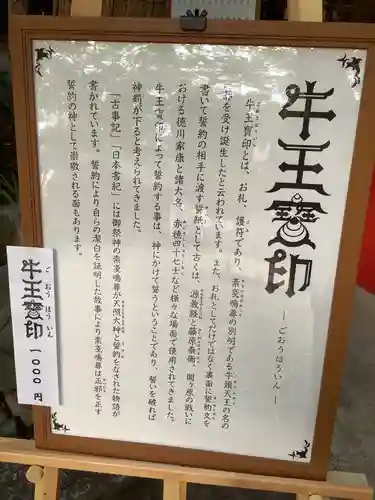 牛王寶印
― ごおうほういん ―
牛王寶印とは、お札、護符であり、素戔鳴尊の別明である牛頭天王の名の
を受け誕生したと云われています。また、お札としてだけではなく裏面に誓約文を
書いて誓約の相手に渡す誓紙として古くは、源義経と藤原泰衡、関ヶ原の戦いに
おける徳川家康と諸大名、赤穂四十七士など様々な場面で使用されてきました。
牛王寶印によって誓約する事は、神にかけて誓うということであり、誓いを破れば
神罰が下ると考えられてきました。
「古事記」「日本書紀」には御祭神の素戔鳴尊が天照大神と誓約をなされた物語が
書かれています。誓約により自らの潔白を証明した故事により素戔鳴尊は正邪を正す
誓約の神として崇敬される面もあります。
牛王寶印
ごおうほういん
一〇〇〇円